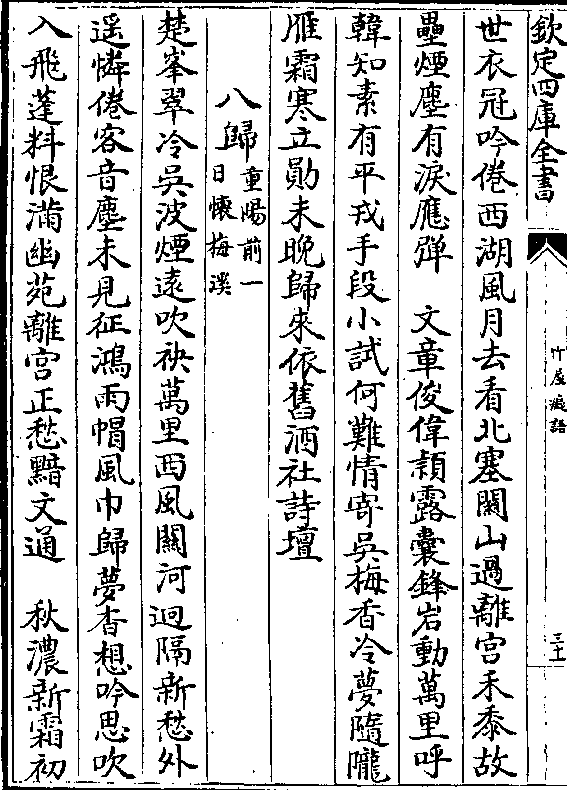 欽定四庫全書
竹屋癡語
三十
世衣冠吟倦西湖風月去看北塞關山過離宮禾黍故
壘煙塵有淚應彈　文章俊偉穎露囊鋒名動萬里呼
韓知素有平戎手段小試何難情寄吳梅香冷夢隨隴
雁霜寒立勛未晩歸來依舊酒社詩壇
八歸重陽前一
日懷梅溪
楚峯翠冷吳波煙遠吹袂萬里西風關河迥隔新愁外
遥憐倦客音塵未見征鴻雨帽風巾歸夢杳想吟思吹
入飛蓬料恨滿幽苑離宮正愁黯文通　秋濃新霜初